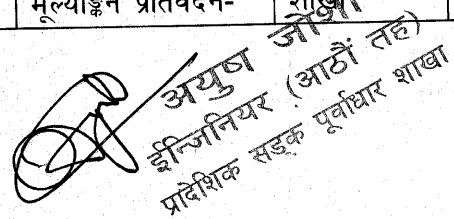 मूल्याङ्कन प्रतिवेदन-
शाखा
अयुष जोशी
ईन्जिनियर (आठौं तह)
प्रादेशिक सडक पूर्वाधार शाखा